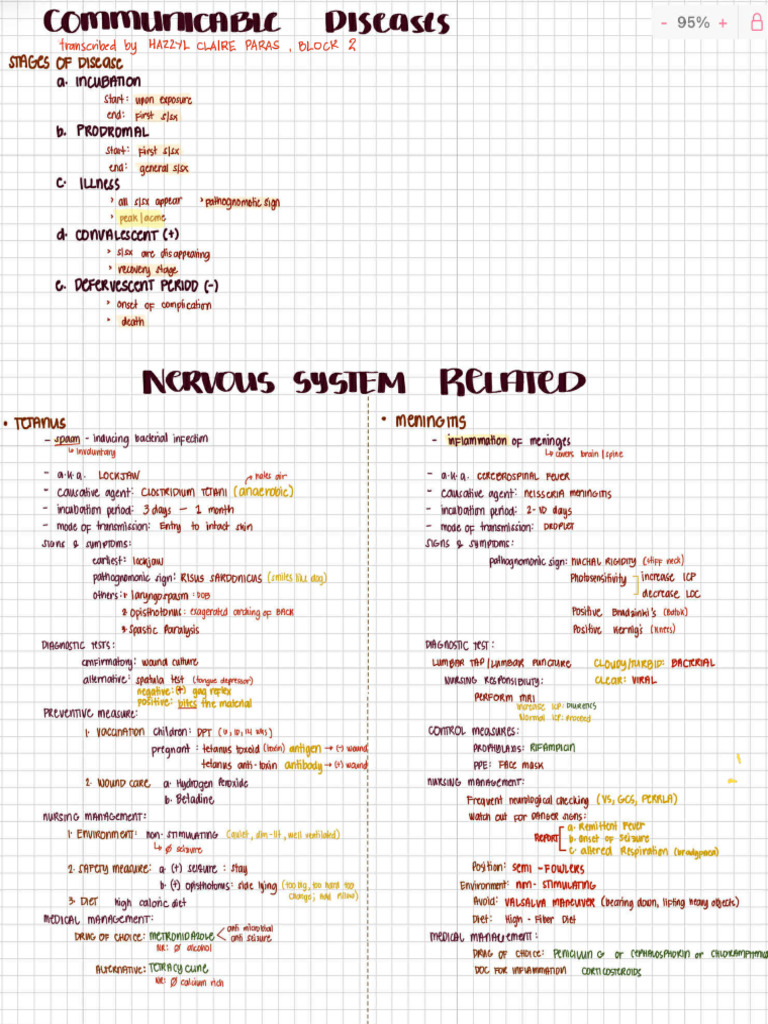 COMMUNICABLE DISEASES
- 95% +
transcribed by HAZZYL CLAIRE PARAS, BLOCK 2
STAGES OF DISEASE
a. INCUBATION
start: upon exposure
end: first s/sx
b. PRODROMAL
start: first s/sx
end: general s/sx
c. ILLNESS
› all s/sx appear › pathognomotic sign
› peak/acme
d. CONVALESCENT (+)
› s/sx are disappearing
› recovery stage
e. DEFERVESCENT PERIOD (-)
› onset of complication
› death
NERVOUS SYSTEM RELATED
• TETANUS
- spasm - inducing bacterial infection
↳ involuntary
- a.k.a. LOCKJAW
- causative agent: CLOSTRIDIUM TETANI (anaerobic)
→ hates air
- incubation period: 3 days - 1 month
- mode of transmission: Entry to intact skin
SIGNS & SYMPTOMS:
earliest: lockjaw
pathognomonic sign: RISUS SARDONICUS (smiles like dog)
others: 1. laryngospasm: DOB
2. Opisthotonus: exagerated arching of BACK
3. Spastic Paralysis
DIAGNOSTIC TESTS:
confirmatory: wound culture
alternative: spatula test (tongue depressor)
negative: (+) gag reflex
positive: bites the material
PREVENTIVE MEASURE:
1. VACCINATION children: DPT (6, 10, 14 wks)
pregnant: tetanus toxoid (toxin) antigen → (-) wound
tetanus anti-toxin antibody → (+) wound
2. WOUND CARE a. Hydrogen Peroxide
b. Betadine
NURSING MANAGEMENT:
1. ENVIRONMENT: non-STIMULATING (quiet, dim-lit, well ventilated)
↳ Ø seizure
2. SAFETY MEASURE: a. (+) seizure: stay
b. (+) opisthotonus: side lying (too big, too hard too
change;
3. DIET high caloric diet
MEDICAL MANAGEMENT:
DRUG OF CHOICE: METRONIDAZOLE < anti microbial
anti seizure
NR: Ø alcohol
ALTERNATIVE: TETRACYCLINE
NR: Ø calcium rich
• MENINGITIS
- inflammation of meninges
↳ covers brain/spine
- a.k.a. CEREBROSPINAL FEVER
- causative agent: NEISSERIA MENINGITIS
- incubation period: 2-10 days
- mode of transmission: DROPLET
SIGNS & SYMPTOMS:
pathognomonic sign: NUCHAL RIGIDITY (stiff neck)
Photosensitivity increase ICP
decrease LOC
Positive Brudzinki's (Batok)
Positive Kernig's (Knees)
DIAGNOSTIC TEST:
LUMBAR TAP/LUMBAR PUNCTURE CLOUDY/TURBID: BACTERIAL
NURSING RESPONSIBILITY: CLEAR: VIRAL
PERFORM MRI
Increase ICP: DIURETICS
Normal ICP: Proceed
CONTROL MEASURES:
PROPHYLAXIS: RIFAMPICIN
PPE: FACE MASK
NURSING MANAGEMENT:
Frequent neurological checking (VS, GCS, PERRLA)
Watch out for DANGER SIGNS:
REPORT a. Remittent Fever
b. Onset of Seizure
c. altered Respiration (bradypnea)
Position: SEMI-FOWLERS
Environment: NON-STIMULATING
Avoid: VALSALVA MANEUVER (bearing down, lifting heavy objects)
Diet: High-Fiber Diet
MEDICAL MANAGEMENT:
DRUG OF CHOICE: PENICILLIN G or CEPHALOSPORIN or CHLORAMPHENICOL
DOC FOR INFLAMMATION CORTICOSTEROIDS